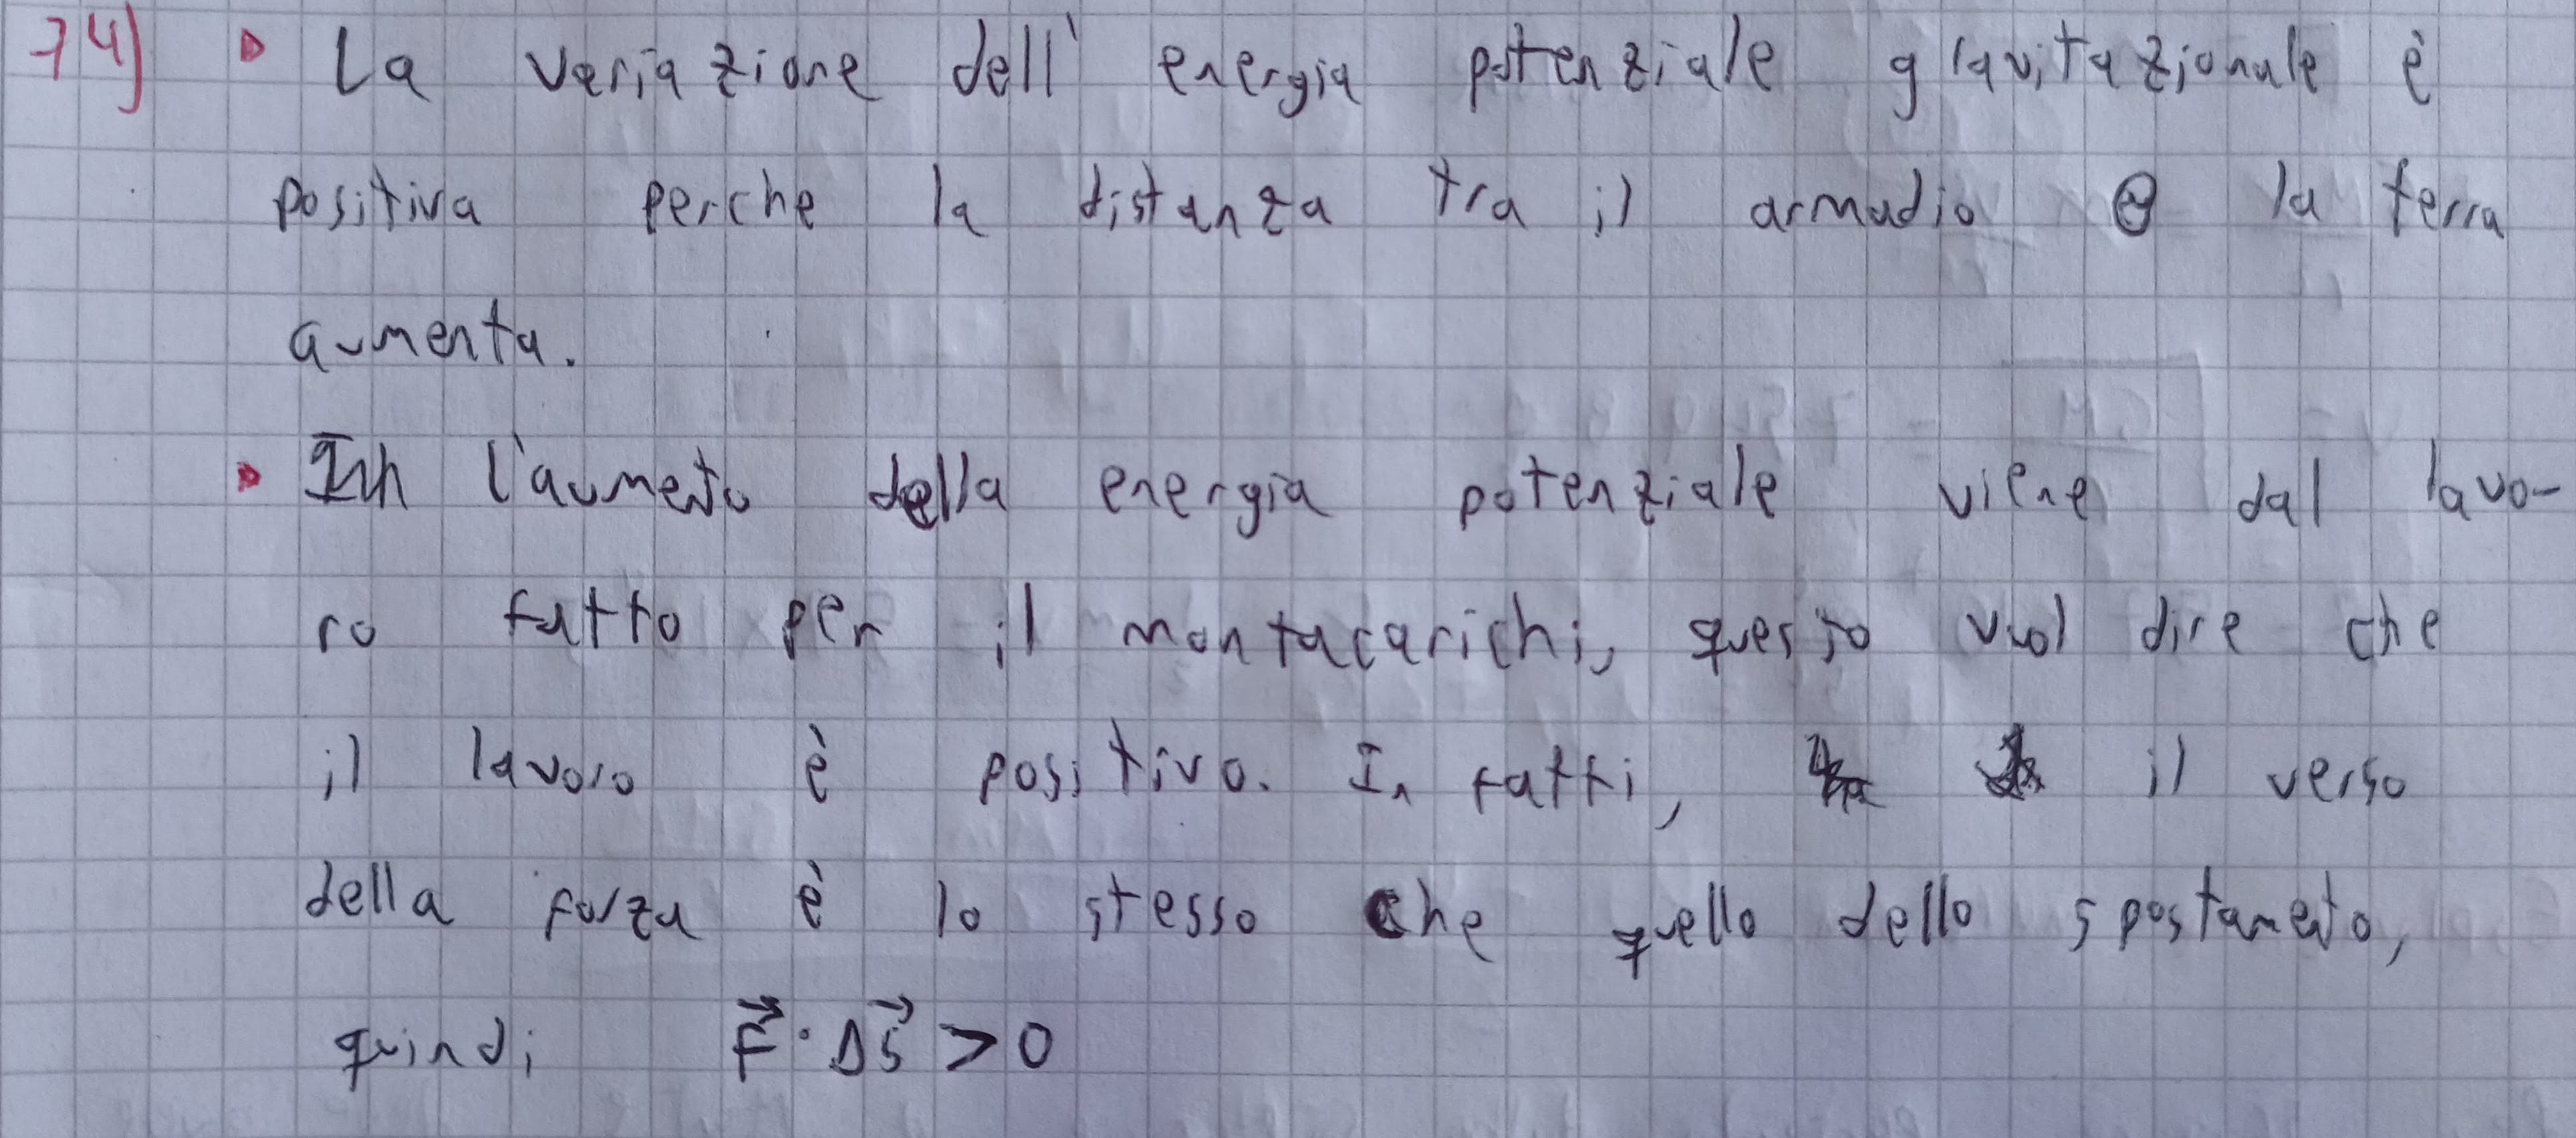 74) La variazione dell'energia potenziale gravitazionale è
positiva perche la distanza tra il armadio e la terra
aumenta.
l'aumento della energia potenziale viene dal lavo-
ro fatto per il montacarichi, questo vuol dire che
il lavoro è positivo. In fatti, il verso
della forza è lo stesso che quello dello spostamento,
quindi F⃗ · Δs⃗ > 0